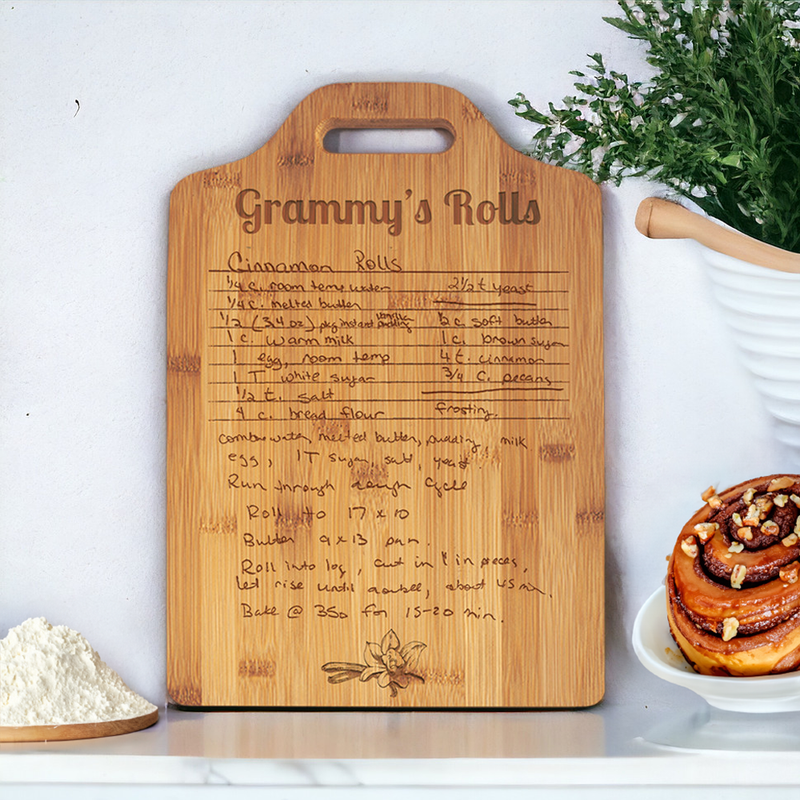 Grammy's Rolls
Cinnamon Rolls
1/4 c. room temp water
2 1/2 t yeast
1/4 c. melted butter
1/2 (3.4 oz) pkg instant vanilla pudding
1/2 c. soft butter
1 c. warm milk
1 c. brown sugar
1 egg, room temp
4 t. cinnamon
1 T white sugar
3/4 C. pecans
1/2 t. salt
4 c. bread flour
frosting.
combine water, melted butter, pudding, milk
egg, 1T sugar, salt, yeast
Run through dough Cycle
Roll to 17 x 10
Butter 9 x 13 pan.
Roll into log, cut in 1 in pieces,
let rise until double, about 45 min.
Bake @ 350 for 15-20 min.